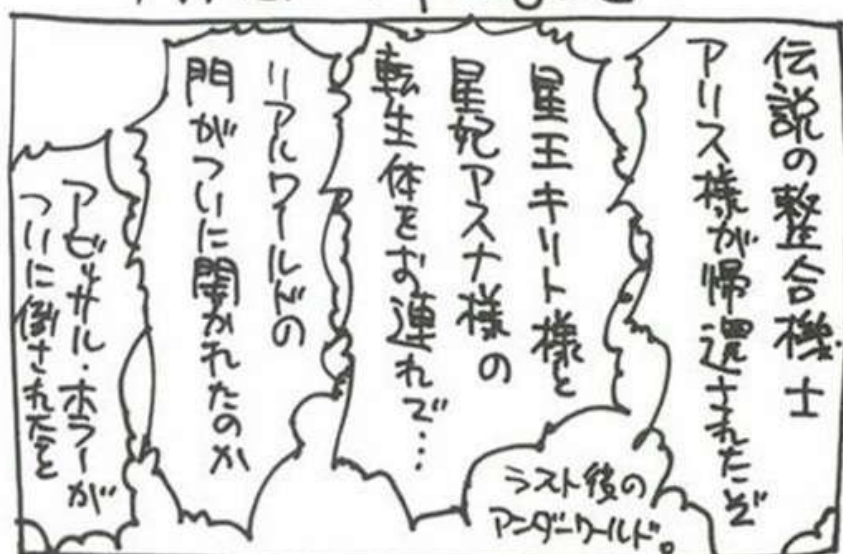 伝説の整合機士
アリス様が帰還されたぞ
星王キリト様と
星妃アスナ様の
転生体をお連れで…
リアルワールドの
門がついに開かれたのか
アビッサル・ホラーが
ついに倒されたと
ラスト後の
アンダーワールド。